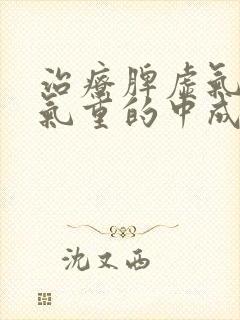 治疗脾虚氣
氣重的中成
沈又西